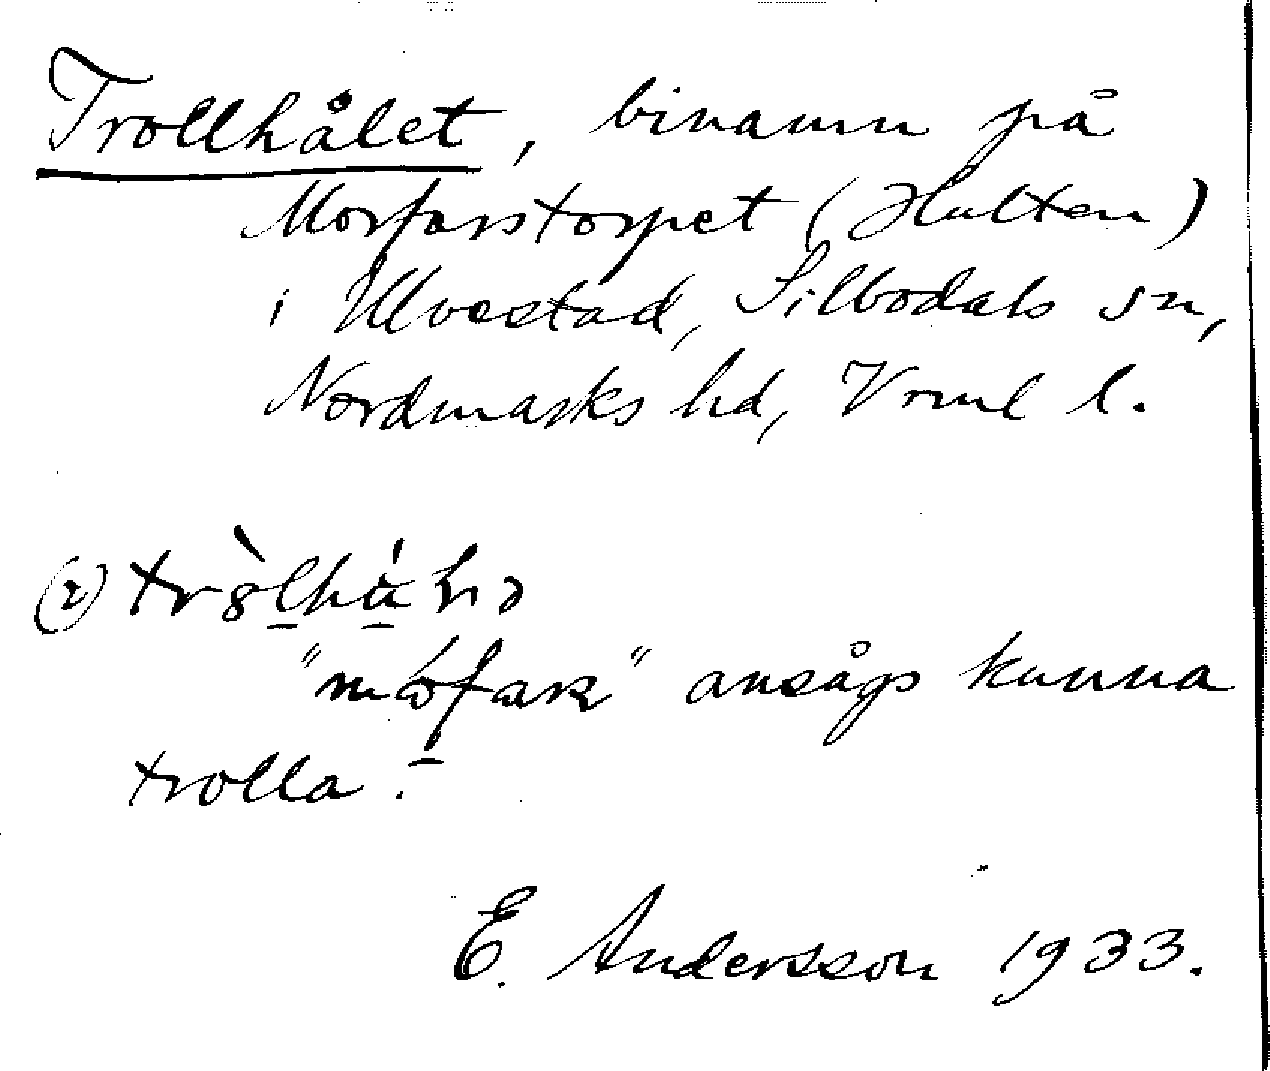 Trollhålet, binamn på
Morfarstorpet (Hulten)
i Ulvestad, Silbodals sn,
Nordmarks hd, Vrml l.
(2)
"mófar" ansågs kunna
trolla.
E. Andersson 1933.